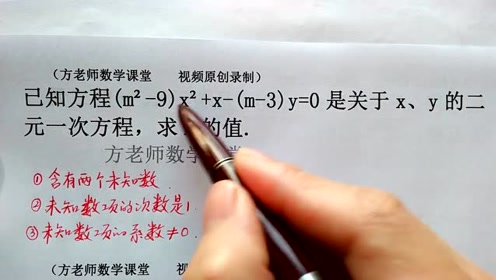 （方老师数学课堂 视频原创录制）
已知方程(m²-9)x²+x-(m-3)y=0 是关于 x、y 的二
元一次方程，求 的值.
方老师数学 堂
①含有两个未知数.
②未知数项的次数是1.
③未知数项的系数≠0.
（方老师数学课堂 视